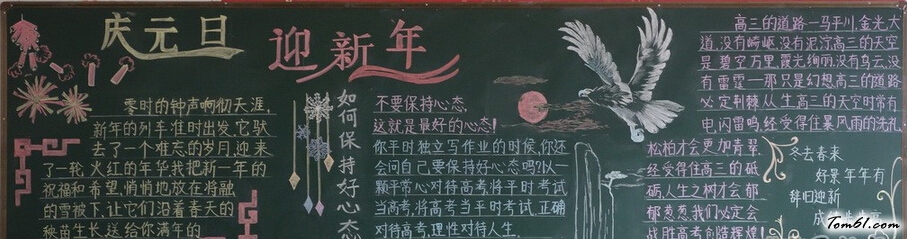 庆元旦
迎新年
零时的钟声响彻天涯,
新年的列车准时出发,它驮
去了一个难忘的岁月,迎来
了一轮火红的年华我把新一年的
祝福和希望,悄悄地放在将融
的雪被下,让它们沿着春天的
秧苗生长,送给你满年的
如何保持好心态
不要保持心态,
这就是最好的心态!
你平时独立写作业的时候,你还
会问自己要保持好心态吗?以一
颗平常心对待高考将平时考试
当高考,将高考当平时考试,正确
对待高考,理性对待人生.
高三的道路一马平川,金光大
道,没有崎岖,没有泥泞高三的天空
是碧空万里,霞光绚丽,没有乌云,没
有雷霆一那只是幻想高三的道路
必定荆棘丛生高三的天空时常有
电闪雷鸣,经受得住暴风雨的洗礼
松柏才会更加青翠,
经受得住高三的砥
砺人生之树才会郁
郁葱葱,我们必定会
战胜高考创造辉煌!
冬去春来
好景年年有
辞旧迎新
Tom61.com